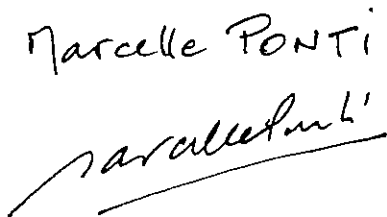 Marcelle PONTi
Marcelle Ponti